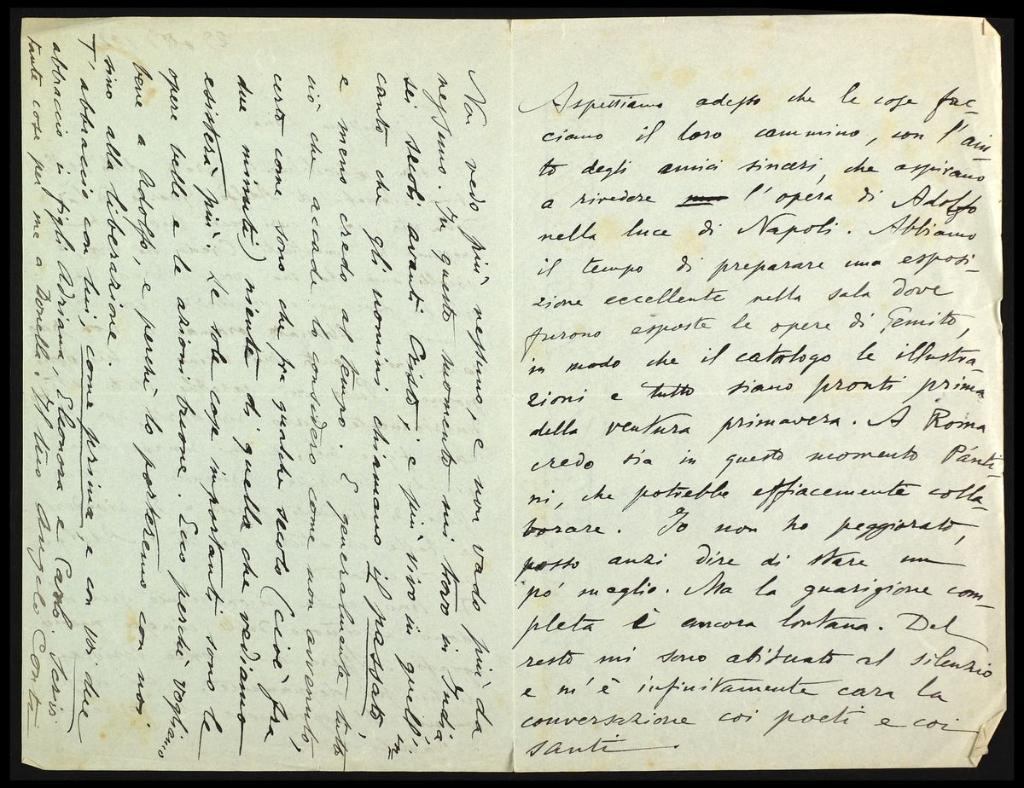 Aspettiamo adesso che le cose fac-
ciano il loro cammino, con l'aiu-
to degli amici sinceri, che aspirano
a rivedere l'opera di Adolfo
nella luce di Napoli. Abbiamo
il tempo di preparare una esposi-
zione eccellente nella sala dove
furono esposte le opere di Gemito,
in modo che il catalogo le illustra-
zioni e tutto siano pronti prima
della ventura primavera. A Roma
credo sia in questo momento Pánti-
ni, che potrebbe efficacemente colla-
borare. Io non ho peggiorato,
posso anzi dire di stare un
pó meglio. Ma la guarigione com-
pleta è ancora lontana. Del
resto mi sono abituato al silenzio
e m'è infinitamente cara la
conversazione coi poeti e coi
santi.
Non vedo più nessuno, e non vado più da
nessuno. In questo momento mi trovo in India
sei secoli avanti Cristo; e più vivo in quell' in-
canto che gli uomini chiamano il passato,
e meno credo al tempo. E generalmente tutto
ciò che accade lo considero come non avvenuto,
certo come sono che fra qualche secolo (cioè fra
due minuti) niente di quello che vediamo
esisterà più. Le sole cose importanti sono le
opere belle e le azioni buone. Ecco perchè vogliamo
bene a Adolfo, e perchè lo porteremo con noi
sino alla liberazione.
T'abbraccio con lui, come prima, e con voi due
abbraccio i figli Adriana, Eleonora e Carlo. Scrivi
tante cose per me a Donella. Il tuo Angelo Conti